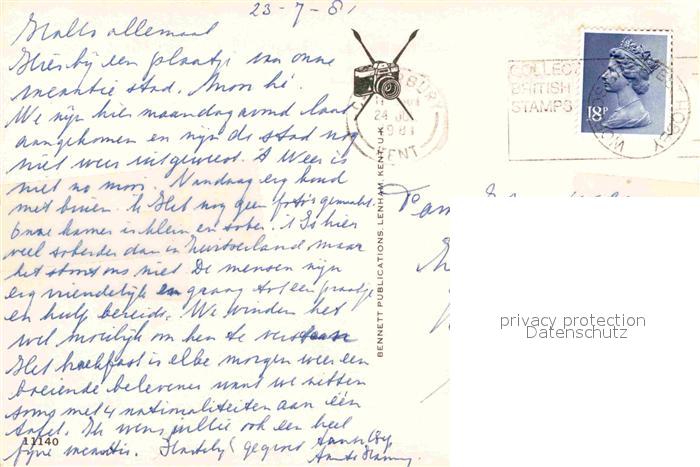 23-7-81
Hallo allemaal
Hierbij een plaatje van onze
vacantie stad. Mooi hé.
We zijn hier maandagavond laat
aangekomen en zijn de stad nog
niet weer uitgeweest. 't Weer is
niet zo mooi. Vandaag erg koud
met buien. Ik Heb nog geen foto's gemaakt.
Onze kamer is klein en sober. 't Is hier
veel soberder dan in maar
het stoort ons niet De mensen zijn
erg vriendelijk en graag tot een praatje
en hulp bereid. We vinden het
wel moeilijk om hen te verstaan
Het breakfast is elke morgen weer een
boeiende belevenis want we zitten
soms met 4 nationaliteiten aan één
tafel. Ik wens jullie ook een heel
fijne vacantie. Hartelijk gegroet
11140
BENNETT PUBLICATIONS, LENHAM, KENT, U.K.
24 JUL
1981
KENT
COLLECT
BRITISH
STAMPS
18P
Fam
privacy protection
Datenschutz